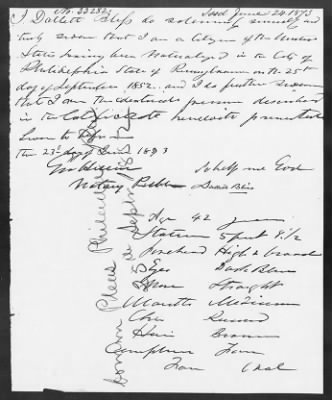 No. 33252 Issd June 24 1873
I Dallett Bliss do solemnly
truly swear that I am a citizen of the United
States having been Naturalized in the City of
Philadelphia State of Pennsylvania on the 25th
day of September 1852. and I do further swear
that I am the identical person described
in the Certificate herewith presented
Sworn to before
the 23d day of June 1873
So help me God
Notary Public Bliss
Common Pleas Philadelphia
Sept 1852
Age 42 years
Stature 5 feet 8 1/2
Forehead High & broad
Eyes Dark Blue
Nose Straight
Mouth Medium
Chin Round
Hair Brown
Complexion
Face Oval